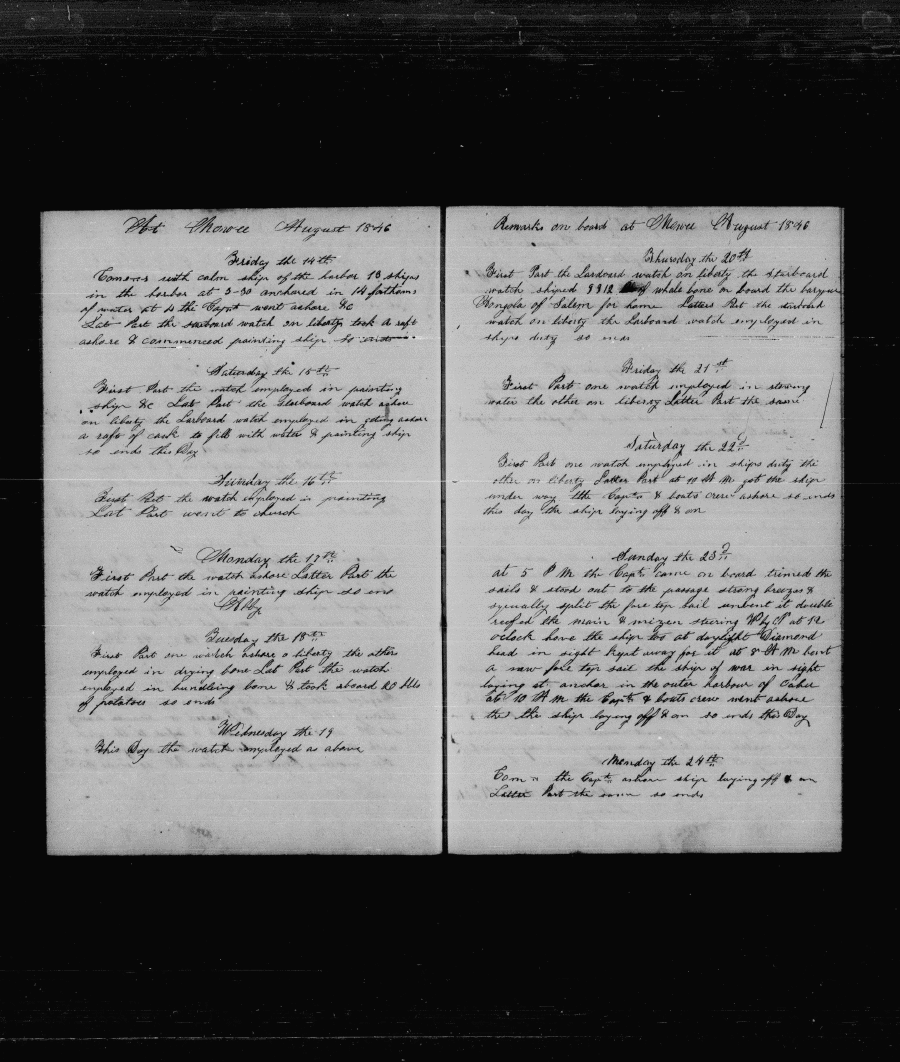 At Mowee August 1846
Friday the 14th
Comences with calm ship of the harbor 13 ships
in the harbor at 3-30 anchored in 14 fathoms
of water at 4 the Capt went ashore &c
Lat Part the starboard watch on liberty took a raft
ashore & commenced painting ship so ends
Saturday the 15th
First Part the watch employed in painting
ship &c Lat Part the starboard watch ashore
on liberty the Larboard watch employed in geting ashore
a raft of cask to fill with water & painting ship
so ends this Day
Sunday the 16th
First Part the watch employed in painting
Lat Part went to church
Monday the 17th
First Part the watch ashore Latter Part the
watch employed in painting ship so ens
Tuesday the 18th
First Part one watch ashore o liberty the other
employed in drying bone Lat Part the watch
employed in bundleing bone & took aboard 20 bbls
of potatoes so ends
Wednesday the 19
This Day the watch employed as above
Remarks on board at Mowee August 1846
Thursday the 20th
First Part the Lardoard watch on liberty the starboard
watch shiped 8812 of whale bone on board the barque
Angola of Salem for home Latter Part the starboard
watch on liberty the Larboard watch employed in
ships duty so ends
Friday the 21st
First Part one watch employed in stowing
water the other on liberty Latter Part the same
Saturday the 22d
First Part one watch employed in ships duty the
other on liberty Latter Part at 10 A M got the ship
under way the Capt & boats crew ashore so ends
this day the ship laying off & on
Sunday the 23d
at 5 P M the Capt came on board trimed the
sails & stood out to the passage strong breezes &
squually split the fore top sail unbent it double
reefed the main & mizen steering W by N at 12
oclock have the ship too at daylight Diamond
had in sight kept away for it at 8 A M bent
a new fore top sail the ship of war in sight
laying at anchor in the outer harbour of
at 10 A M the Capt & boats crew went ashore
the the ship laying off & on so ends this Day
Monday the 24th
Com the Capt ashore ship laying off & on
Latter Part the same so ends